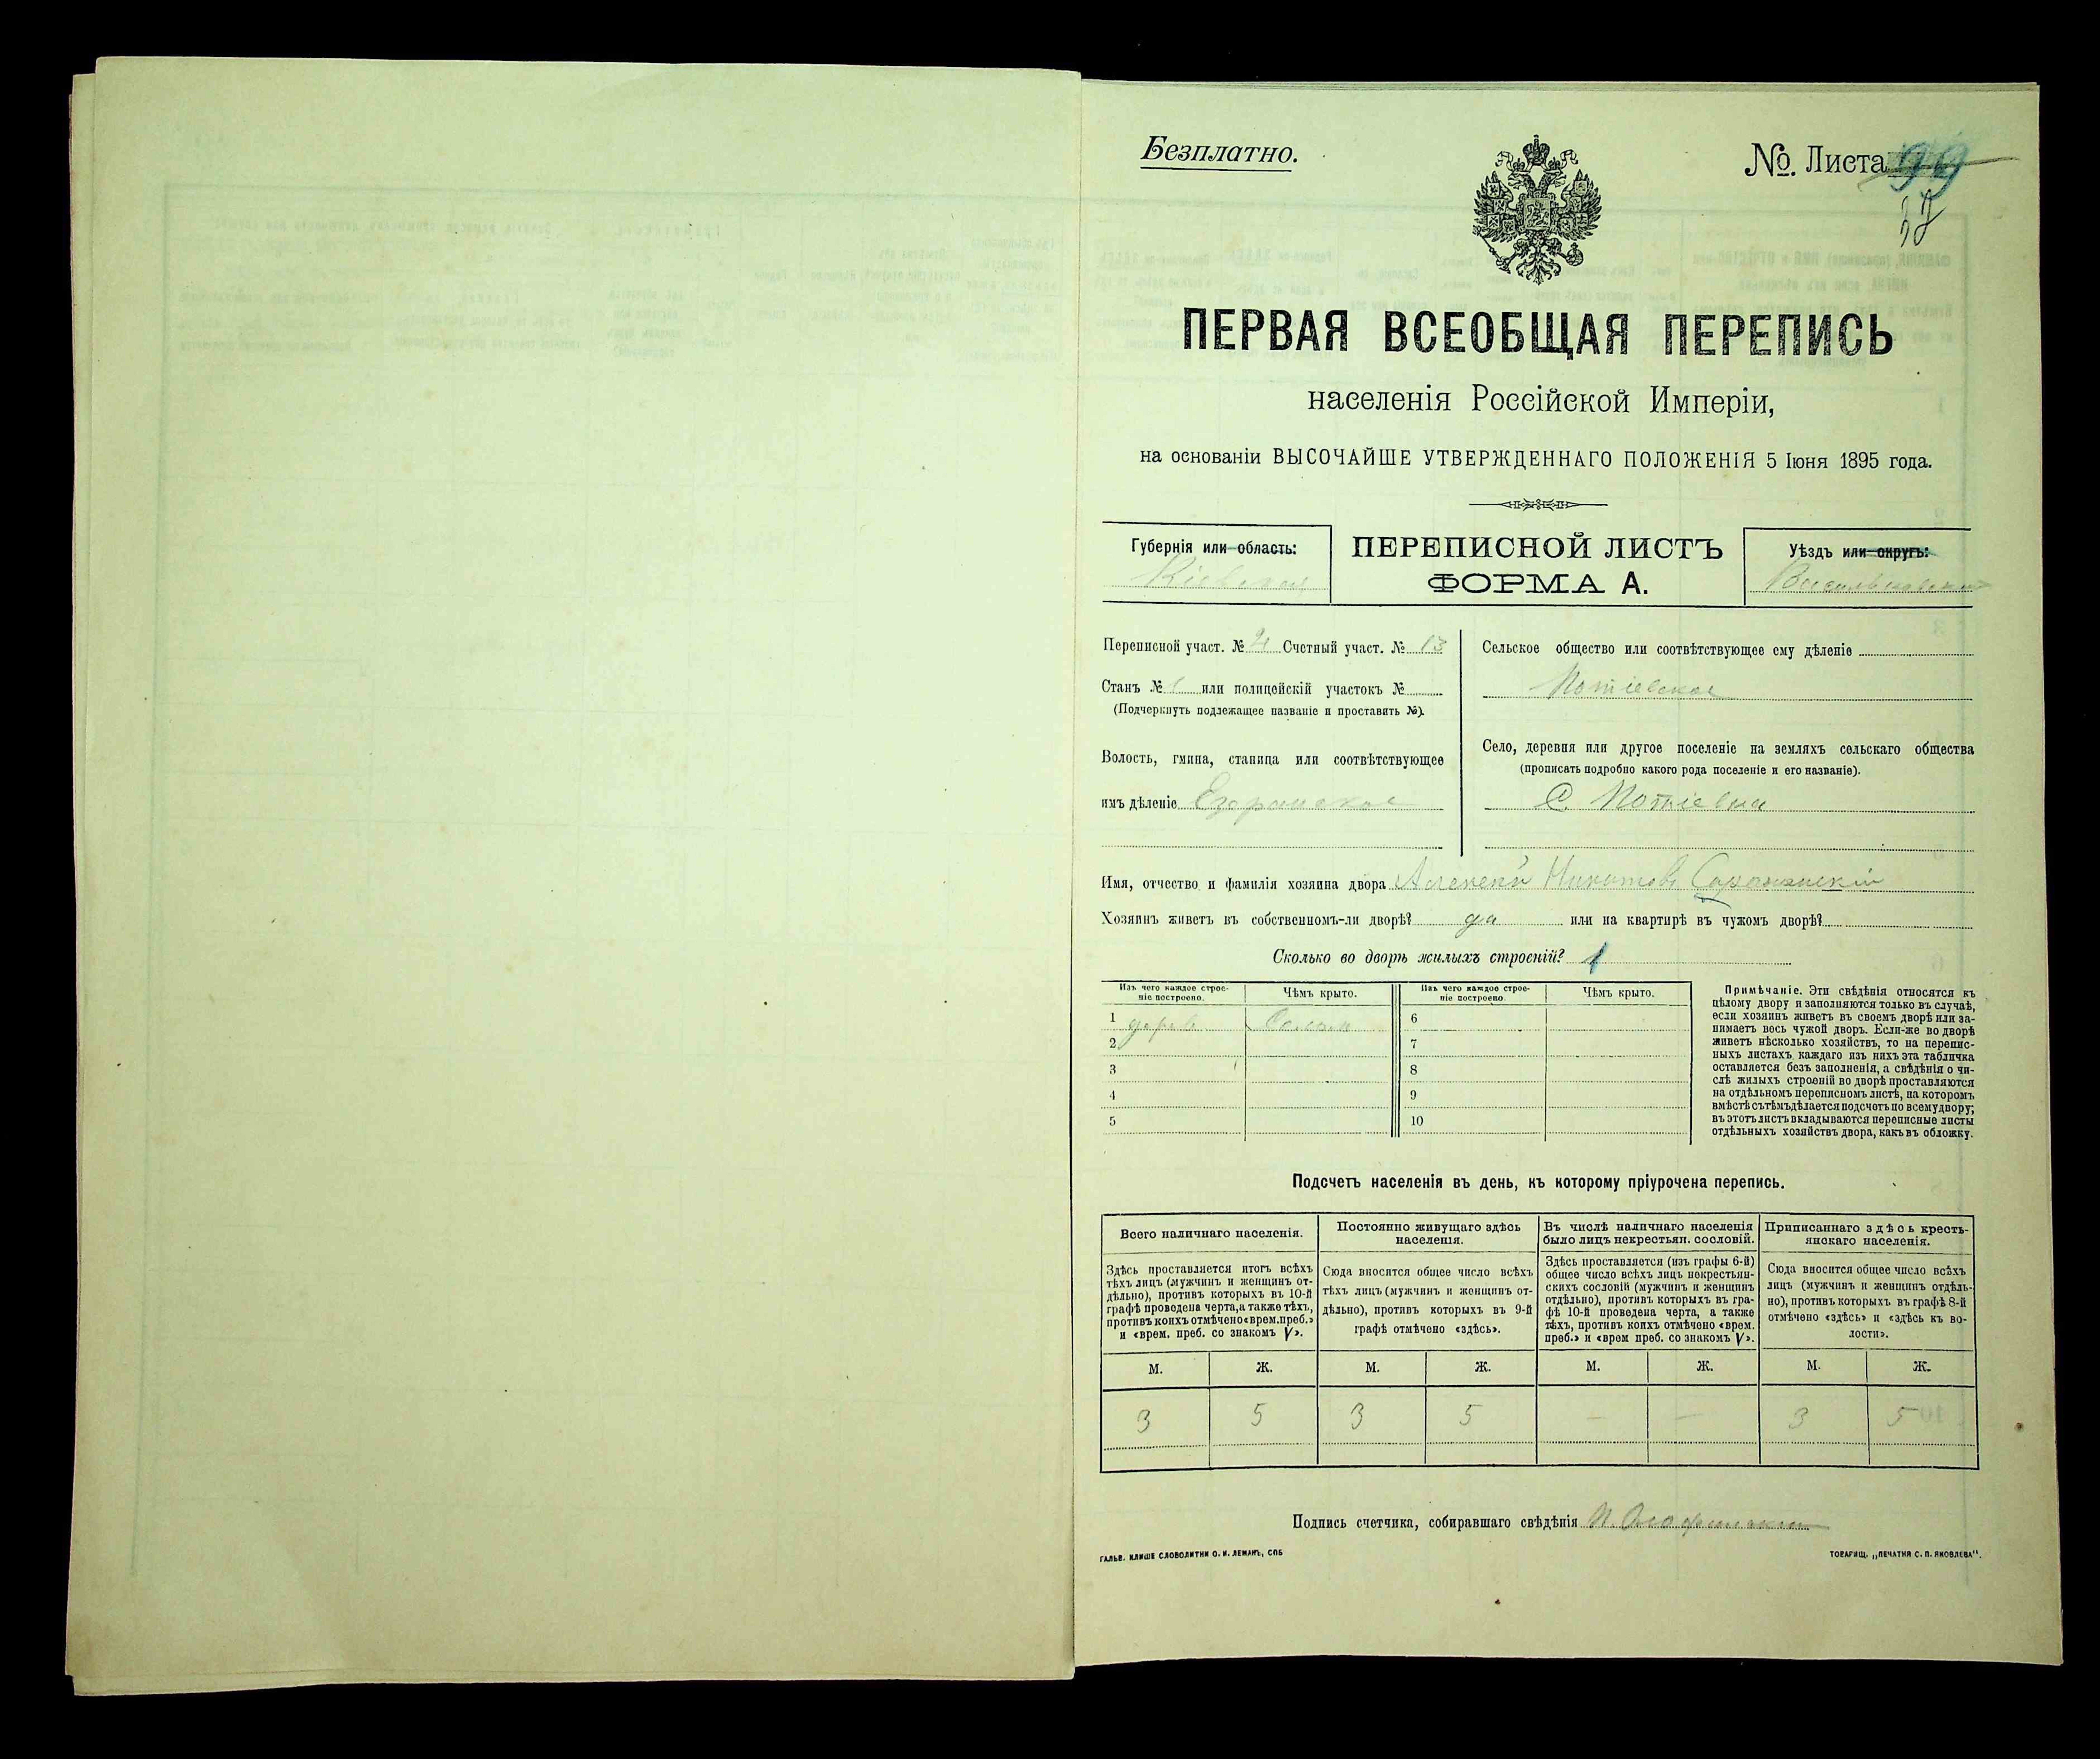 Безплатно.
№. Листа 99
ПЕРВАЯ ВСЕОБЩАЯ ПЕРЕПИСЬ
населенія Россійской Имперіи,
на основаніи ВЫСОЧАЙШЕ УТВЕРЖДЕННАГО ПОЛОЖЕНІЯ 5 Іюня 1895 года.
Губернія или область:
Кіевская
ПЕРЕПИСНОЙ ЛИСТЪ
ФОРМА А.
Уѣздъ или округъ:
Васильковскій
Переписной участ. № 4 Счетный участ. № 13
Станъ № 1 или полицейскій участокъ №
(Подчеркнуть подлежащее названіе и проставить №).
Волость, гмина, станица или соотвѣтствующее
имъ дѣленіе
Сельское общество или соотвѣтствующее ему дѣленіе
Потіевское
Село, деревня или другое поселеніе на земляхъ сельскаго общества
(прописать подробно какого рода поселеніе и его названіе).
С. Потіевка
Имя, отчество и фамилія хозяина двора Алексей Никитовъ
Хозяинъ живетъ въ собственномъ-ли дворѣ? да или на квартирѣ въ чужомъ дворѣ?
Сколько во дворѣ жилыхъ строеній? 1
Изъ чего каждое строе-
ніе построено.
Чѣмъ крыто.
Изъ чего каждое строе-
ніе построено
Чѣмъ крыто.
1 дерев Солом
2
3
4
5
6
7
8
9
10
Примѣчаніе. Эти свѣдѣнія относятся къ
цѣлому двору и заполняются только въ случаѣ,
если хозяинъ живетъ въ своемъ дворѣ или за-
нимаетъ весь чужой дворъ. Если-же во дворѣ
живетъ нѣсколько хозяйствъ, то на перепис-
ныхъ листахъ каждаго изъ нихъ эта табличка
оставляется безъ заполненія, а свѣдѣнія о чи-
слѣ жилыхъ строеній во дворѣ проставляются
на отдѣльномъ переписномъ листѣ, на которомъ
вмѣстѣ съ тѣмъ дѣлается подсчетъ по всему двору;
въ этотъ листъ вкладываются переписные листы
отдѣльныхъ хозяйствъ двора, какъ въ обложку.
Подсчетъ населенія въ день, къ которому пріурочена перепись.
Всего наличнаго населенія.
Здѣсь проставляется итогъ всѣхъ
тѣхъ лицъ (мужчинъ и женщинъ от-
дѣльно), противъ которыхъ въ 10-й
графѣ проведена черта, а также тѣхъ,
противъ коихъ отмѣчено «врем. преб.»
и «врем. преб. со знакомъ V».
Постоянно живущаго здѣсь
населенія.
Сюда вносится общее число всѣхъ
тѣхъ лицъ (мужчинъ и женщинъ от-
дѣльно), противъ которыхъ въ 9-й
графѣ отмѣчено «здѣсь».
Въ числѣ наличнаго населенія
было лицъ некрестьян. сословій.
Здѣсь проставляется (изъ графы 6-й)
общее число всѣхъ лицъ некрестьян-
скихъ сословій (мужчинъ и женщинъ
отдѣльно), противъ которыхъ въ гра-
фѣ 10-й проведена черта, а также
тѣхъ, противъ коихъ отмѣчено «врем.
преб.» и «врем преб. со знакомъ V».
Приписаннаго здѣсь кресть-
янскаго населенія.
Сюда вносится общее число всѣхъ
лицъ (мужчинъ и женщинъ отдѣль-
но), противъ которыхъ въ графѣ 8-й
отмѣчено «здѣсь» и «здѣсь къ во-
лости».
М. Ж. М. Ж. М. Ж. М. Ж.
3 5 3 5 – – 3 5
Подпись счетчика, собиравшаго свѣдѣнія
ГАЛЬВ. КЛИШЕ СЛОВОЛИТНИ О. И. ЛЕМАНЪ, СПБ
ТОВАРИЩ. „ПЕЧАТНЯ С. П. ЯКОВЛЕВА".